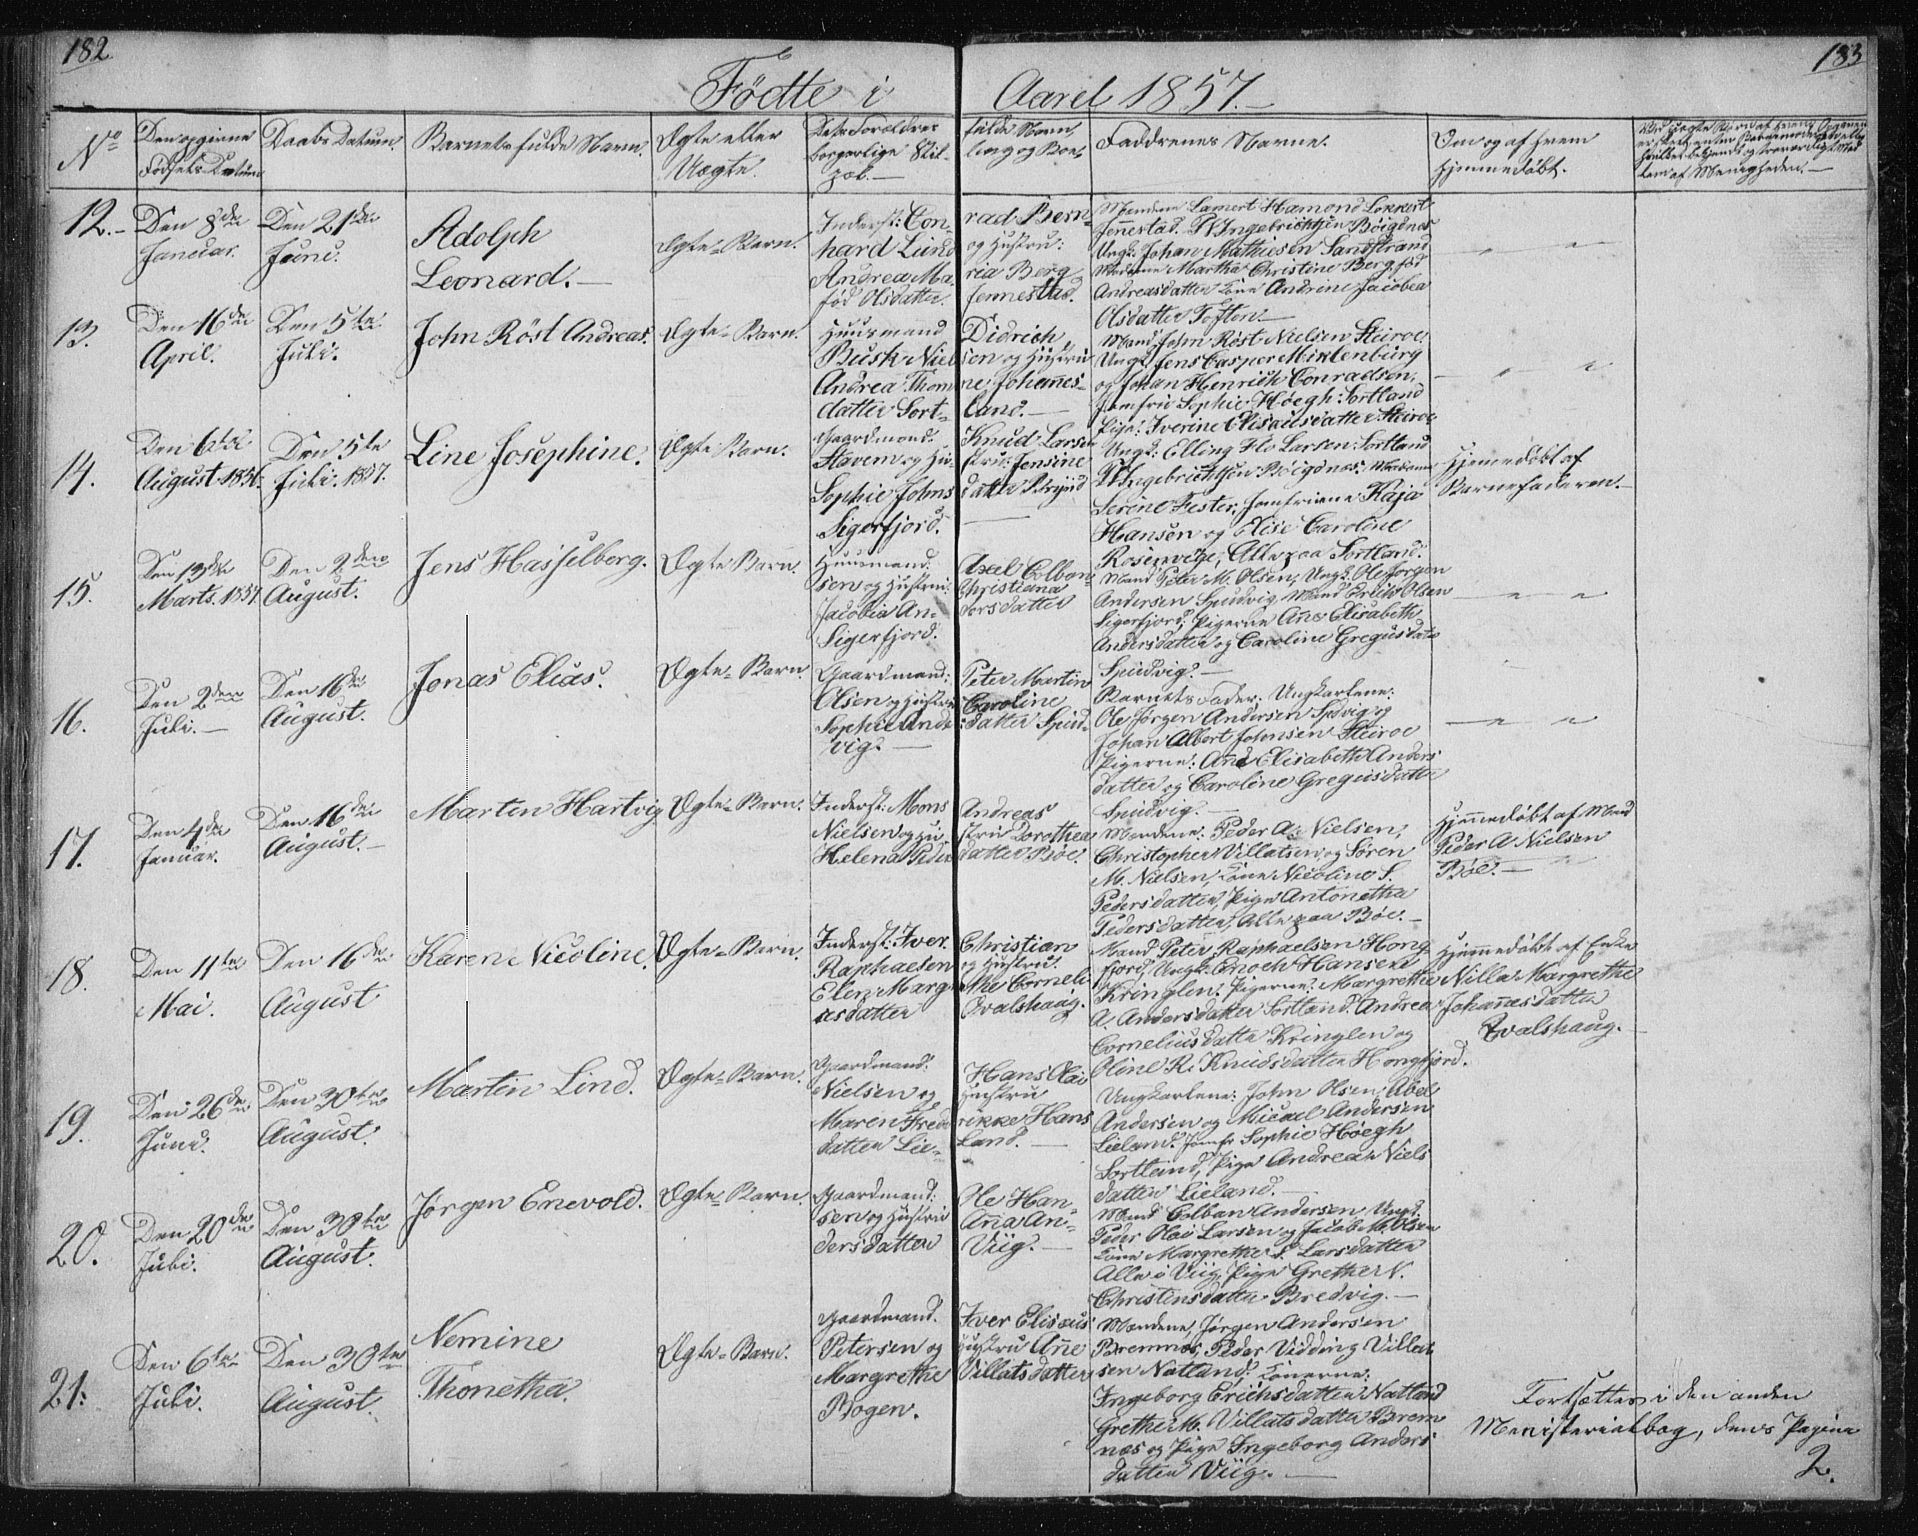 182
183
Födte i Aaret 1857.
No
Den opgivne Födsels Datum
Daabs Datum.
Barnets fulde Navn.
Ægte eller Uægte.
Dets Forældres fulde Navn, borgerlige Stilling og Boepæl.
Faddrenes Navne.
Om og af hvem hjemmedöbt.
12.
Den 8de Januar.
Den 21de Juni.
Adolph Leonard.
Ægte-Barn.
Inderst: Conrad Bernhard Lund og Hustru: Andrea Maria Berg född Olsdatter Jennestad.
Mændene Lamert Hamond Lokkert
Jennestad. P Ingebrichtsen Böigdnes
Ungk: Johan Mathiesen Sandstrand
Madame Martha Christine Berg, föd
Andreasdatter Kone Andrine Jacobea
Olsdatter Toften.
13.
Den 16de April.
Den 5te Juli.
John Röst Andreas.
Ægte-Barn.
Huusmand Didrich Bush Nielsen og Hustru Andrea Thomine Johannesdatter Sortland.
Mand John Röst Nielsen Steiroe
Ungk: Jens Casper Mirtenburg
og Johan Henrich Conradsen,
Jomfru Sophie Høegh: Sortland
Pige: Iverine Elisausdatter Steiroe
14.
Den 6te August 1856.
Den 5te Juli. 1857.
Line Josephine.
Ægte Barn.
Gaardmand. Knud Larsen Stavem og Hustru: Jensine Sophie Johnsdatter Sigerfjord.
Ungk: Elling Ho Larsen: Sortland
P Ingebrichtsen Böigdnes: Madame
Serine Fester, Jomfruene Kaja
Hansen og Elise Caroline
Rosenvige, Alle paa Sortland.
Hjemmedöbt af
Barnefaderen.
15.
Den 13de Marts. 1857.
Den 2den August.
Jens Hasselberg.
Ægte Barn.
Huusmand. Axel Colbansen og Hustru: Christiana Jacobia Andersdatter Sigerfjord.
Mand Peter M. Olsen, Ungk: Ole Jörgen
Andersen Spudvig, Mand Erich Olsen
Sigerfjord, Pigerne Ane Elisabeth
Andersdatter og Caroline Gregusdatr
Spudvig.
16.
Den 2den Juli.
Den 16de August.
Jonas Elias.
Ægte-Barn.
Gaardmand: Peter Martin Olsen og Hustru Caroline Sophie Andersdatter Spudvig.
Barnets Fader. Ungkarlene:
Ole Jørgen Andersen Spdvig og
Johan Albert Johnsen Steiroe
Pigerne: Ane Elisabeth Anders
datter og Caroline Gregusdatter
Spudvig.
17.
Den 4de Januar.
Den 16de August.
Marten Hartvig
Ægte-Barn.
Inderst: Mons Andreas Nielsen og Hustru Dorothea Helena Pedersdatter Böe.
Mændene: Peder A. Nielsen,
Christopher Villatsen og Søren
M. Nielsen, Kone Nicoline S.
Pedersdatter, Pige Antonetha
Pedersdatter, Alle paa Böe.
Hjemmedöbt af Mand
Peder A Nielsen
Böe.
18.
Den 11te Mai.
Den 16de August
Karen Nicoline.
Ægte-Barn.
Inderst: Iver Christian Raphaelsen og Hustru: Elen Margrethe Corneliusdatter Qvalshaug.
Mand Peter Raphaelsen Hong
fjord, Ungk: Enoch Hansen
Kringlen, Pigerne: Margrethe
A. Andersdatter Sortland. Andrea
Corneliusdatter Kringlen og
Oline R. Knudsdatter Hongfjord.
Hjemmedöbt af Enke
Nilla Margrethe
Johannesdatter
Qvalshaug.
19.
Den 26de Juni.
Den 30te August.
Martin Lind.
Ægte-Barn.
Gaardmand. Hans Olai Nielsen og Hustru Maren Fredrikke Hansdatter Lieland.
Ungkarlene: John Olsen, Abel
Andersen og Micael Andersen
Lieland. Jomfr Sophie Høegh
Sortland, Pige Andrea Niels
datter Lieland.
20.
Den 20de Juli.
Den 30te August.
Jørgen Enevold.
Ægte-Barn.
Gaardmand: Ole Hansen og Hustru Ana Andersdatter Viig.
Mand Colban Andersen, Ungd:
Peder Olai Larsen og Jacob M. Olsen
Kone Margrethe S. Larsdatter
Alle i Viig, Pige Grethe N.
Christensdatter Bredvig.
21.
Den 6te Juli.
Den 30te August.
Nemine Thonetha.
Ægte-Barn.
Gaardmand. Iver Elisæus Petersen og Hustru Ane Margrethe Villatsdatter Bogen.
Mændene, Jørgen Andersen
Bremnes, Peder Vidding Villat
sen Natland, Konerne:
Ingeborg Erichsdatter Natland
Grethe M. Villatsdatter Brem
næs og Pige Ingeborg Anders
datter Viig.
Fortsættes i den anden
Ministerialbog, dens Pagina
2.